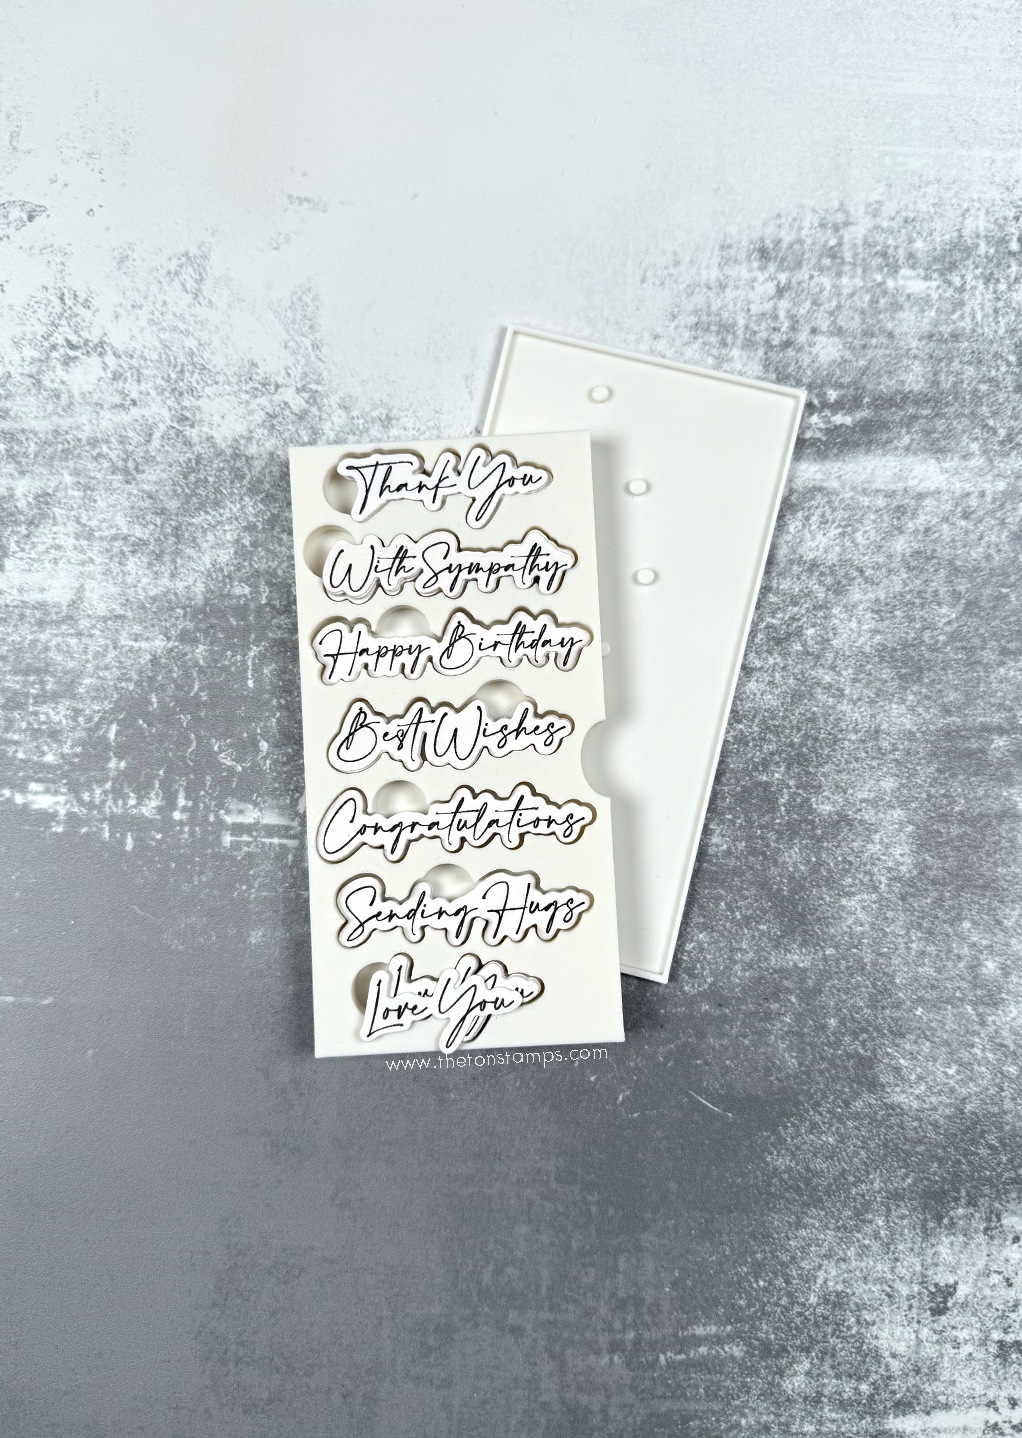 Thank You
With Sympathy
Happy Birthday
Best Wishes
Congratulations
Sending Hugs
Love You
www.thetonstamps.com